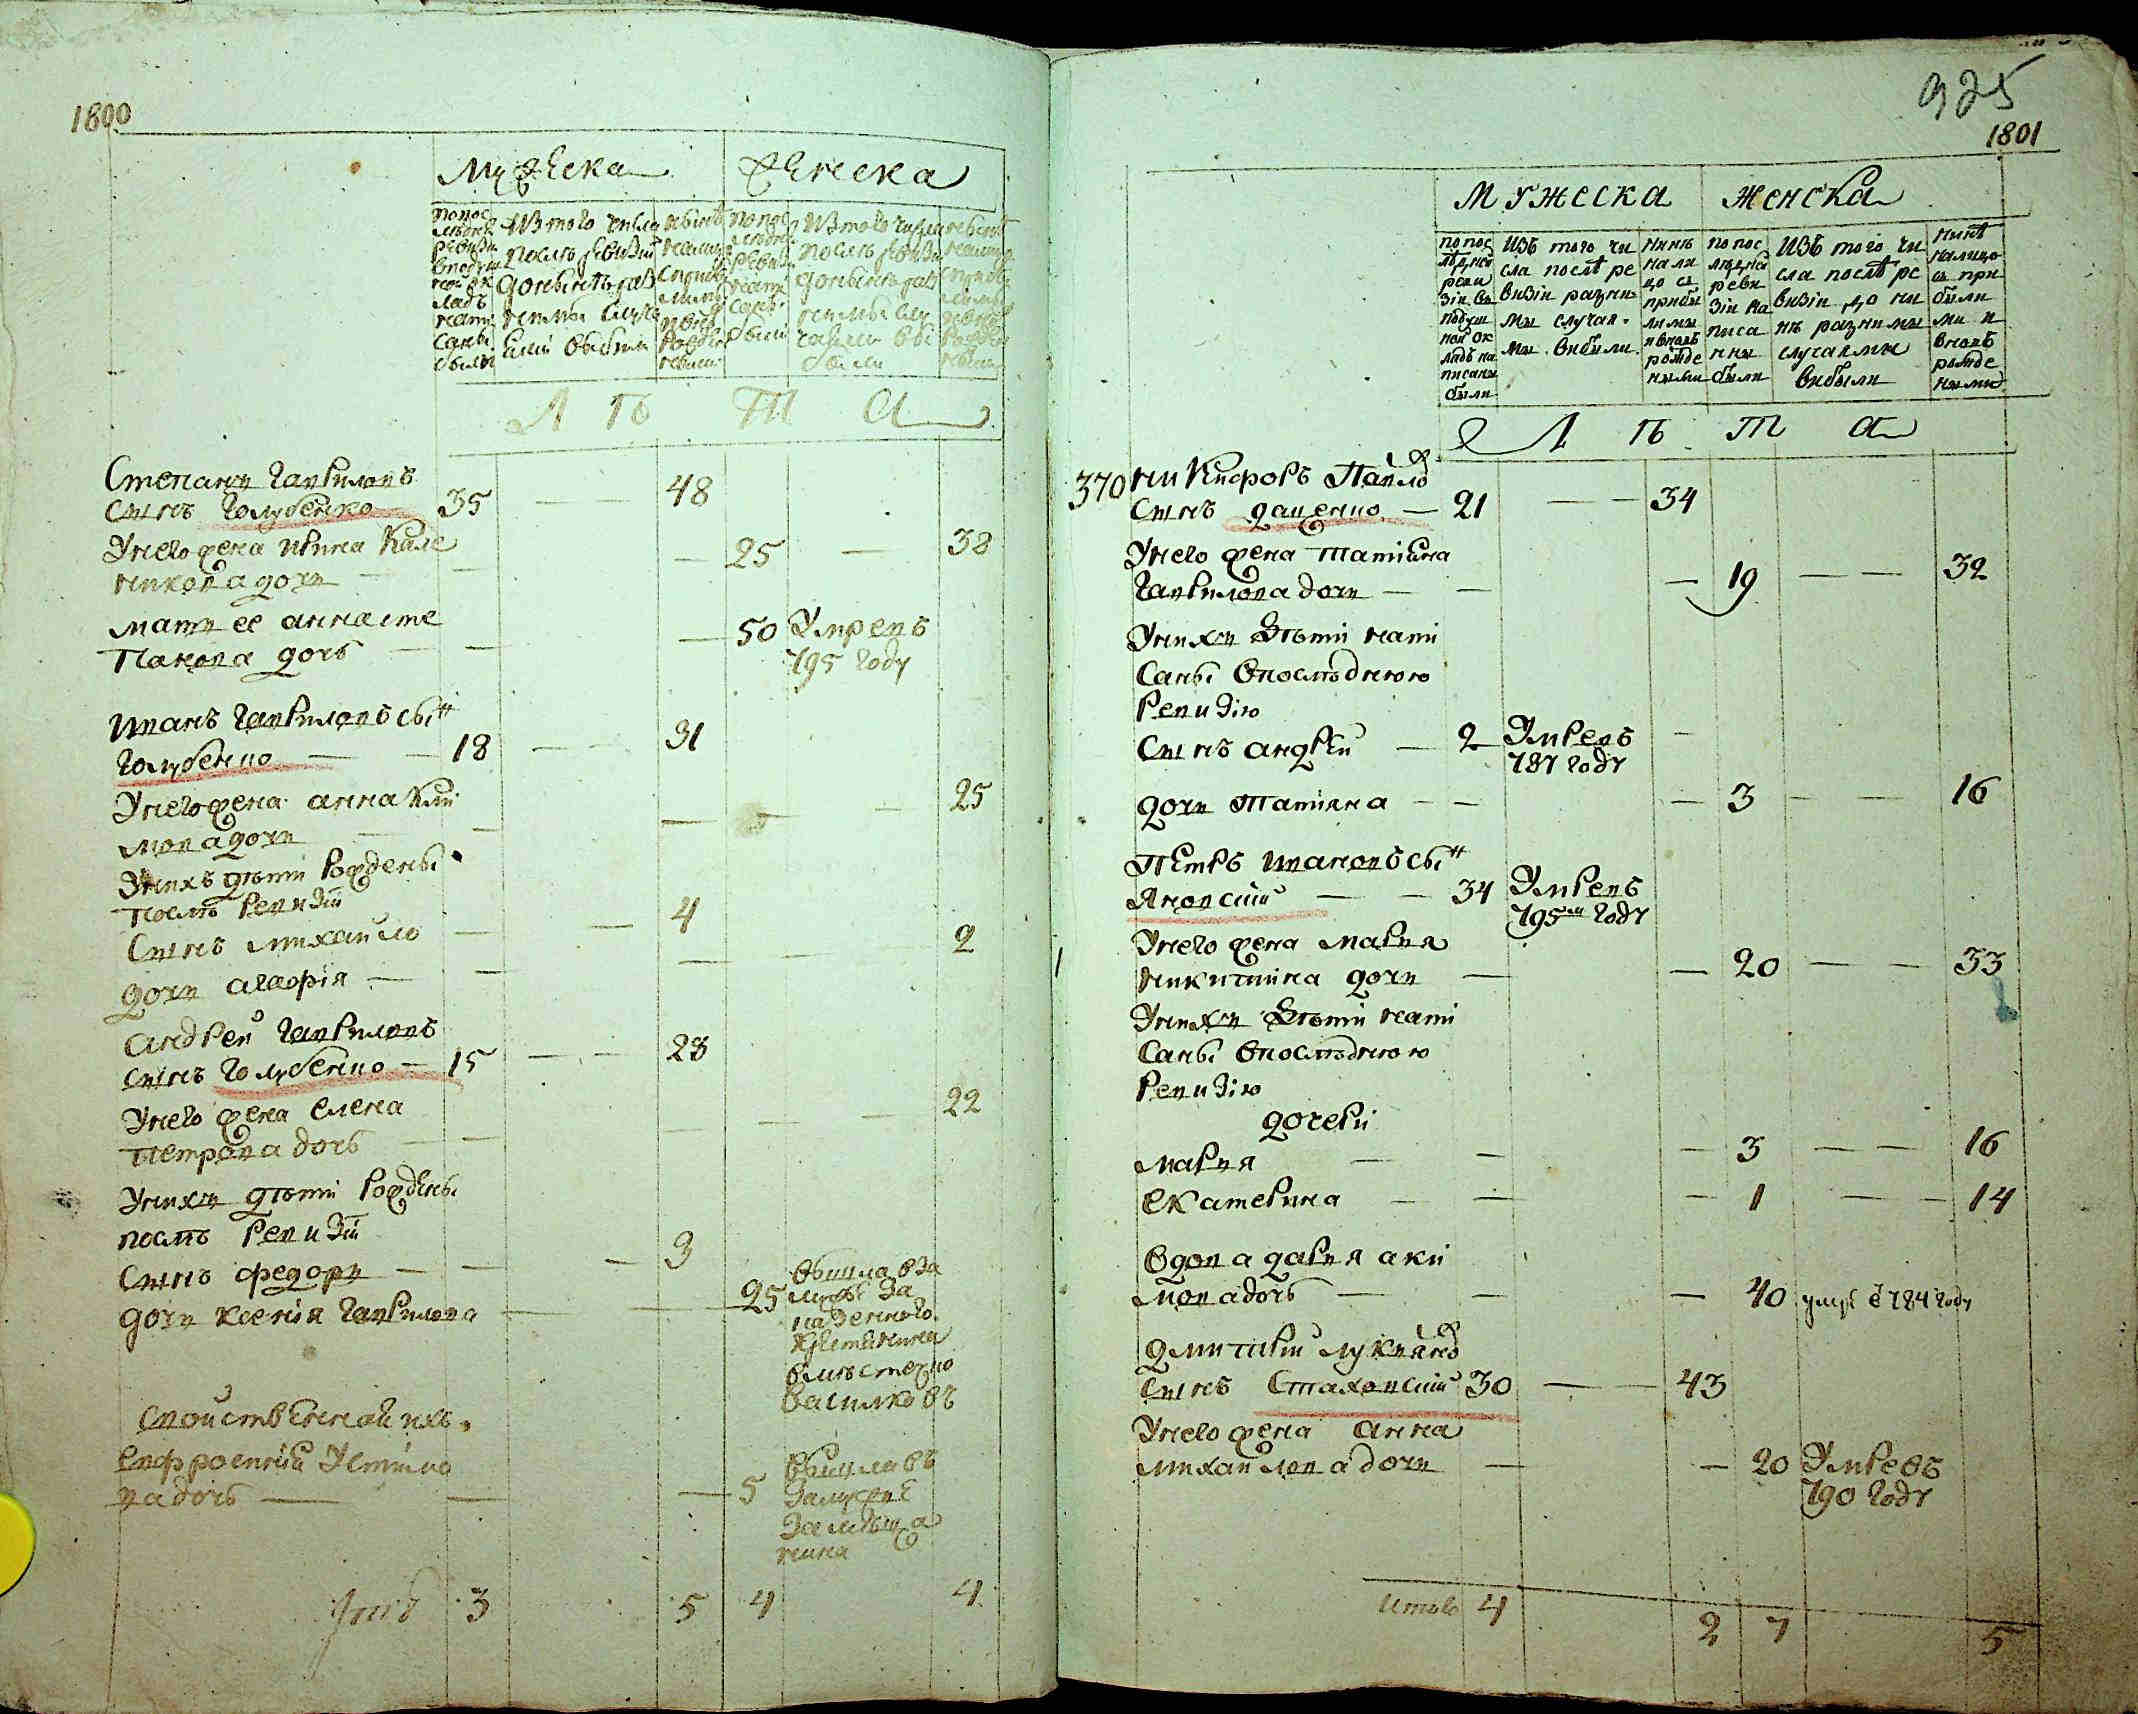 1800
Мужеска Женска
по пос
лѣдней
ревизи
в подуш
ной ок
ладъ
напи
саны
были
Изъ того числа
послѣ ревизии
до нынѣ раз
ными случа
ями выбыли
нынѣ
налицо
по пос
лѣдней
ревизи
напи
саны
были
Изъ того числа
послѣ ревизи
до нынѣ раз
ными слу
чаями вы
были
Л Ѣ Т А
Степанъ Гавриловъ
сынъ Голубенко 35 — — 48
Унего жена ирина Кале
никова дочь — — — 25 — 38
мати ее анна сте
панова дочь — — — 50 Умре въ
795 году
иванъ Гавриловъ сынъ
Голубенко — — 18 — — 31
Унего жена анна Кли
мова дочь — — — — — 25
Унихъ дѣти рождены
послѣ ревизіи
сынъ михайло — — 4
дочь агафія — — — — — 2
андрей Гавриловъ
сынъ Голубенко — 15 — — 28
Унего жена елена
петрова дочь — — — — — 22
Унихъ дѣти рождены
послѣ ревизіи
сынъ федоръ — — — 3
дочь ксенія Гаврилова — — 25 вышла вза
мужъ за
казенного
крестянина
в местечко
васильковъ
свойственной ихъ
евфросинія Устимо
ва дочь — — — 5 вышла въ
замужже
за мѣща
нина
Итого 3 5 4 4
925
1801
Мужеска Женска
по пос
лѣдней
реви
зіи въ
подуш
ной ок
ладъ на
писаны
были
изъ того чи
сла послѣ ре
визіи разны
ми случая
ми выбыли
нынѣ
нали
цо съ
прибы
лыми
и вновь
рожде
нными
по пос
лѣдней
реви
зіи на
писа
ны
были
изъ того чи
сла послѣ ре
визіи до ны
нѣ разними
случаями
выбыли
нынѣ
налицо
съ при
были
ми и
вновь
рожде
ными
Л Ѣ Т А
370 никифоръ Павловъ
сынъ даценко — 21 — — 34
Унего жена татіана
Гаврилова дочь — — — 19 — — 32
Унихъ дѣти напи
саны впослѣднюю
ревизію
сынъ андрей — 2 Умре въ —
787 году
дочь татіяна — — — 3 — — 16
петръ ивановъ сынъ
яновский — — 34 Умре въ
795м году
Унего жена мария
никитина дочь — — 20 — — 33
Унихъ дѣти напи
саны впослѣднюю
ревизію
дочери
мария — — — 3 — — 16
екатерина — — — 1 — — 14
вдова дария аки
мова дочь — — — 40 умре в 784 году
дмитрій лукяновъ
сынъ Стаховский 30 — — 43
Унего жена анна
михайлова дочь — — 20 Умре въ
790 году
итого 4 2 7 5